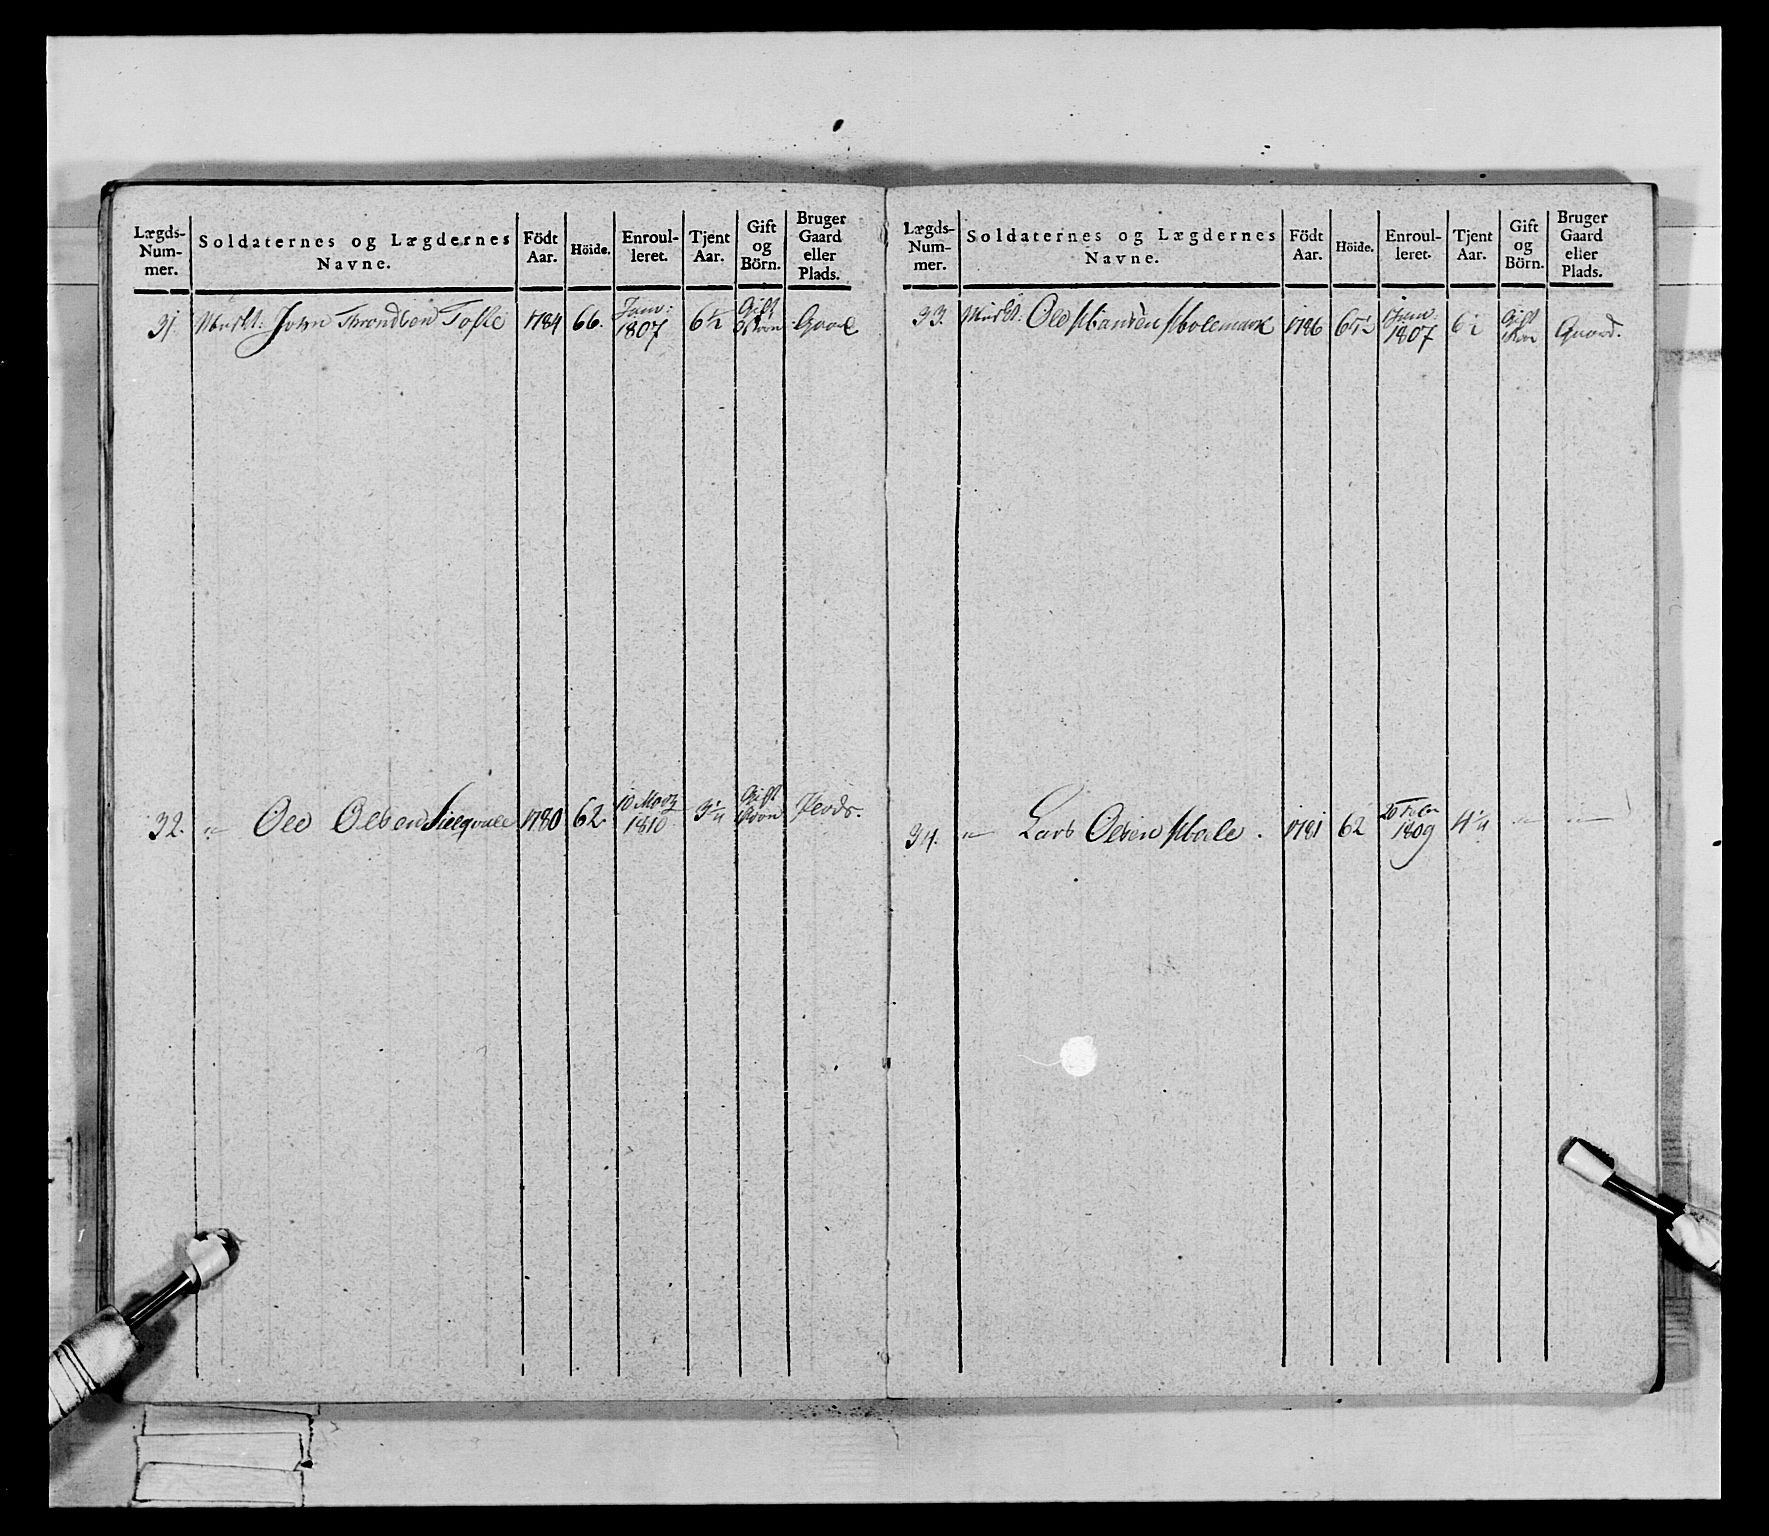 Lægds-Num-mer. Soldaternes og Lægdernes Navne. Födt Aar. Höide. Enroul-leret. Tjent Aar. Gift og Börn. Bruger Gaard eller Plads.
31. Muskt: John Throndsen 1784 66. Janv: 1807 6½ Gift Gaard
32. " Ole Olsen 1780 62 10 Martz 1810 3¼ Gift Plads.
Lægds-Num-mer. Soldaternes og Lægdernes Navne. Födt Aar. Höide. Enroul-leret. Tjent Aar. Gift og Börn. Bruger Gaard eller Plads.
33. Muskt: Ole Hansen 1786 Janv: 1807 6½ Gift Gaard.
34. " Lars Olsen 1781 62 1809 4¼ " "